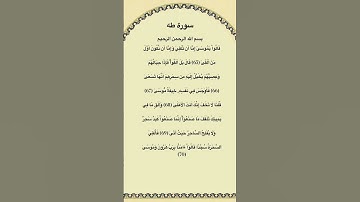 سورة طه
بسم الله الرحمن الرحيم
قَالُوا۟ يَـٰمُوسَىٰٓ إِمَّآ أَن تُلْقِىَ وَإِمَّآ أَن نَّكُونَ أَوَّلَ
مَنْ أَلْقَىٰ (65) قَالَ بَلْ أَلْقُوا۟ فَإِذَا حِبَالُهُمْ
وَعِصِيُّهُمْ يُخَيَّلُ إِلَيْهِ مِن سِحْرِهِمْ أَنَّهَا تَسْعَىٰ
(66) فَأَوْجَسَ فِى نَفْسِهِۦ خِيفَةً مُّوسَىٰ (67)
قُلْنَا لَا تَخَفْ إِنَّكَ أَنتَ ٱلْأَعْلَىٰ (68) وَأَلْقِ مَا فِى
يَمِينِكَ تَلْقَفْ مَا صَنَعُوٓا۟ إِنَّمَا صَنَعُوا۟ كَيْدُ سَـٰحِرٍ
وَلَا يُفْلِحُ ٱلسَّاحِرُ حَيْثُ أَتَىٰ (69) فَأُلْقِىَ
ٱلسَّحَرَةُ سُجَّدًا قَالُوٓا۟ ءَامَنَّا بِرَبِّ هَـٰرُونَ وَمُوسَىٰ
(70)